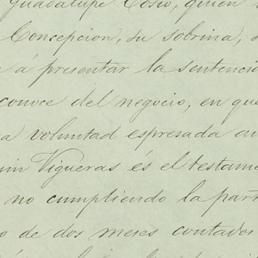 Guadalupe Cosio, quien
Concepcion, su sobrina,
á presentar la sentenci
conoce del negocio, en que
a voluntad espresada an
uin Vigueras és el testame
no cumpliendo la part
o de dos meses contados